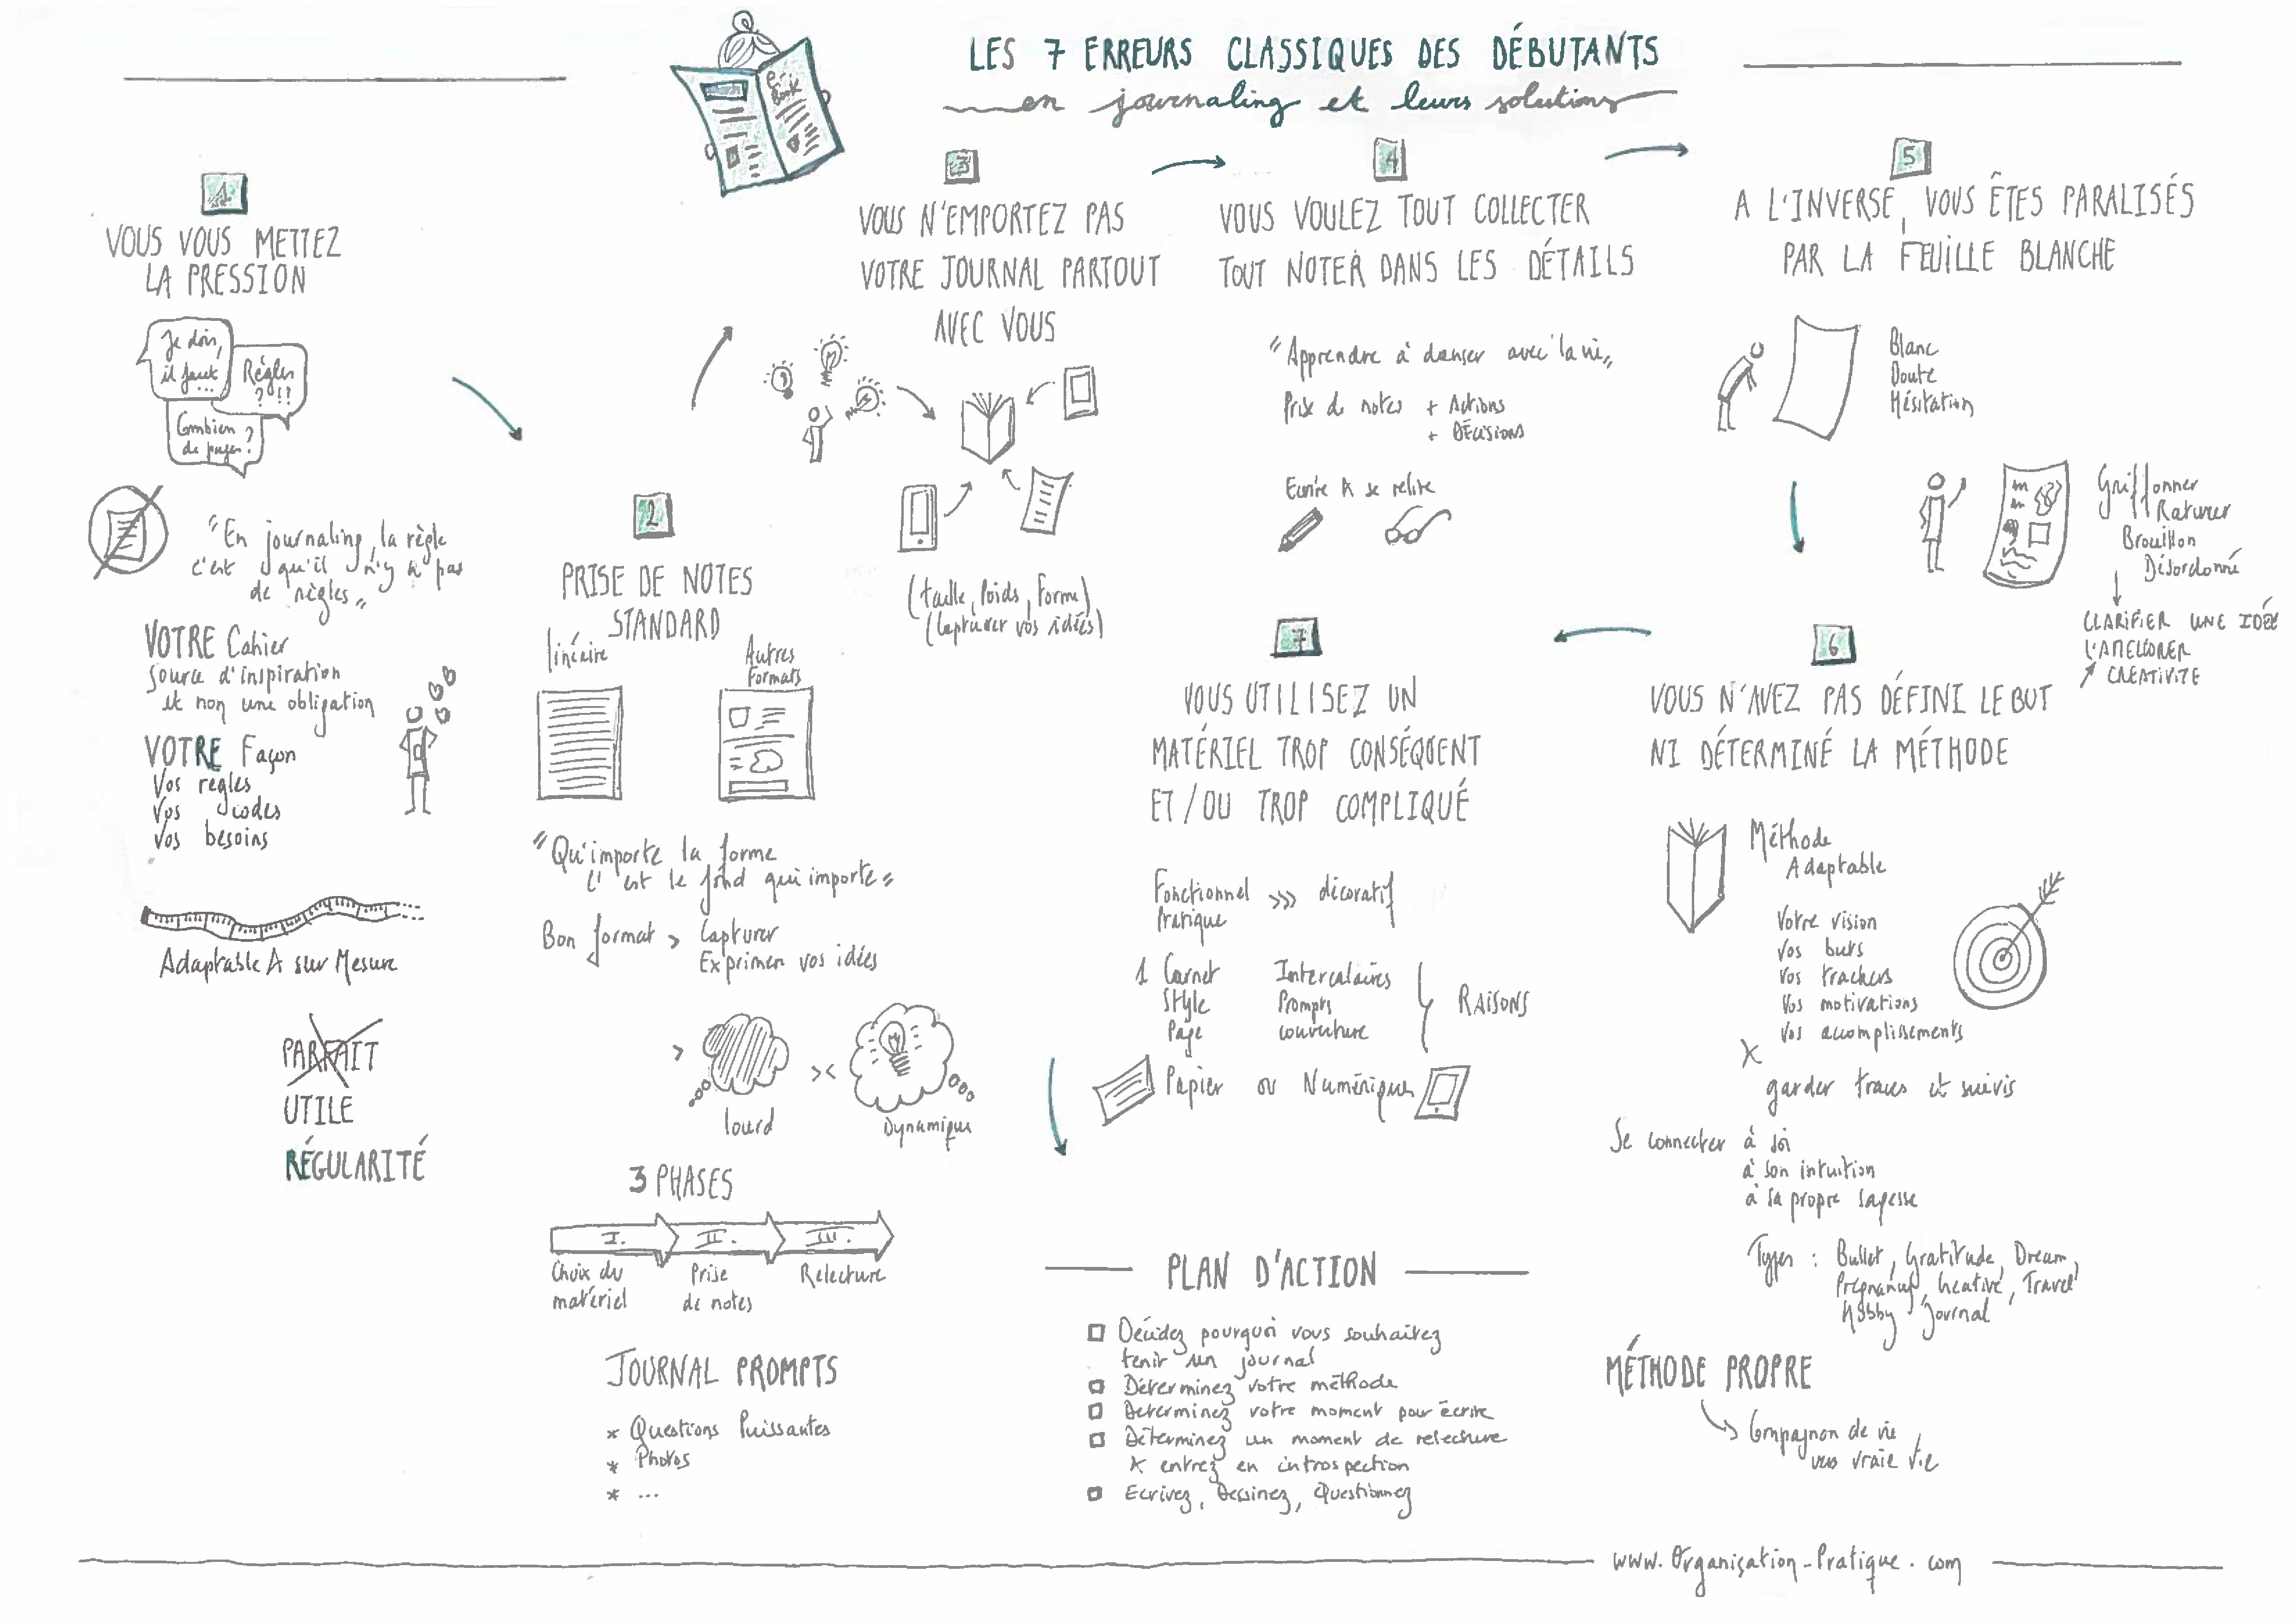 LES 7 ERREURS CLASSIQUES DES DÉBUTANTS
en journaling et leurs solutions
e-Book
1
VOUS VOUS METTEZ
LA PRESSION
Je dois,
il faut
...
Règles
? !!
Combien ?
de pages.
"En journaling, la règle
c'est qu'il n'y a pas
de règles"
VOTRE Cahier
Source d'inspiration
et non une obligation
VOTRE Façon
Vos règles
Vos codes
Vos besoins
Adaptable & sur Mesure
PARFAIT
UTILE
RÉGULARITÉ
2
PRISE DE NOTES
STANDARD
linéaire
Autres
Formats
"Qu'importe la forme
c'est le fond qui importe"
Bon format > Capturer
Exprimer vos idées
> lourd >< Dynamique
3 PHASES
I. II. III.
Choix du
matériel
Prise
de notes
Relecture
JOURNAL PROMPTS
* Questions Puissantes
* Photos
* ...
3
VOUS N'EMPORTEZ PAS
VOTRE JOURNAL PARTOUT
AVEC VOUS
(taille, Poids, Forme)
(Capturer vos idées)
4
VOUS VOULEZ TOUT COLLECTER
TOUT NOTER DANS LES DÉTAILS
"Apprendre à danser avec la vie"
Prise de notes + Actions
+ DÉCISIONS
Ecrire & se relire
5
A L'INVERSE, VOUS ÊTES PARALISÉS
PAR LA FEUILLE BLANCHE
Blanc
Doute
Hésitation
Griffonner
Raturer
Brouillon
Désordonné
CLARIFIER UNE IDÉE
L'AMELIORER
↗ CREATIVITE
6
VOUS N'AVEZ PAS DÉFINI LE BUT
NI DÉTERMINÉ LA MÉTHODE
Méthode
Adaptable
Votre vision
Vos buts
Vos trackers
Vos motivations
Vos accomplissements
&
garder traces et suivis
Se connecter à soi
à son intuition
à sa propre sagesse
Types : Bullet, Gratitude, Dream,
Pregnancy, Creative, Travel
Hobby Journal
MÉTHODE PROPRE
Compagnon de vie
vers vraie vie
7
VOUS UTILISEZ UN
MATÉRIEL TROP CONSÉQUENT
ET/OU TROP COMPLIQUÉ
Fonctionnel >>> décoratif
Pratique
1 Carnet Intercalaires
Style Prompts
Page couverture
RAISONS
Papier ou Numérique
PLAN D'ACTION
Décidez pourquoi vous souhaitez
tenir un journal
Déterminez votre méthode
Déterminez votre moment pour écrire
Déterminez un moment de relecture
& entrez en introspection
Ecrivez, Dessinez, Questionnez
www.Organisation-Pratique.com